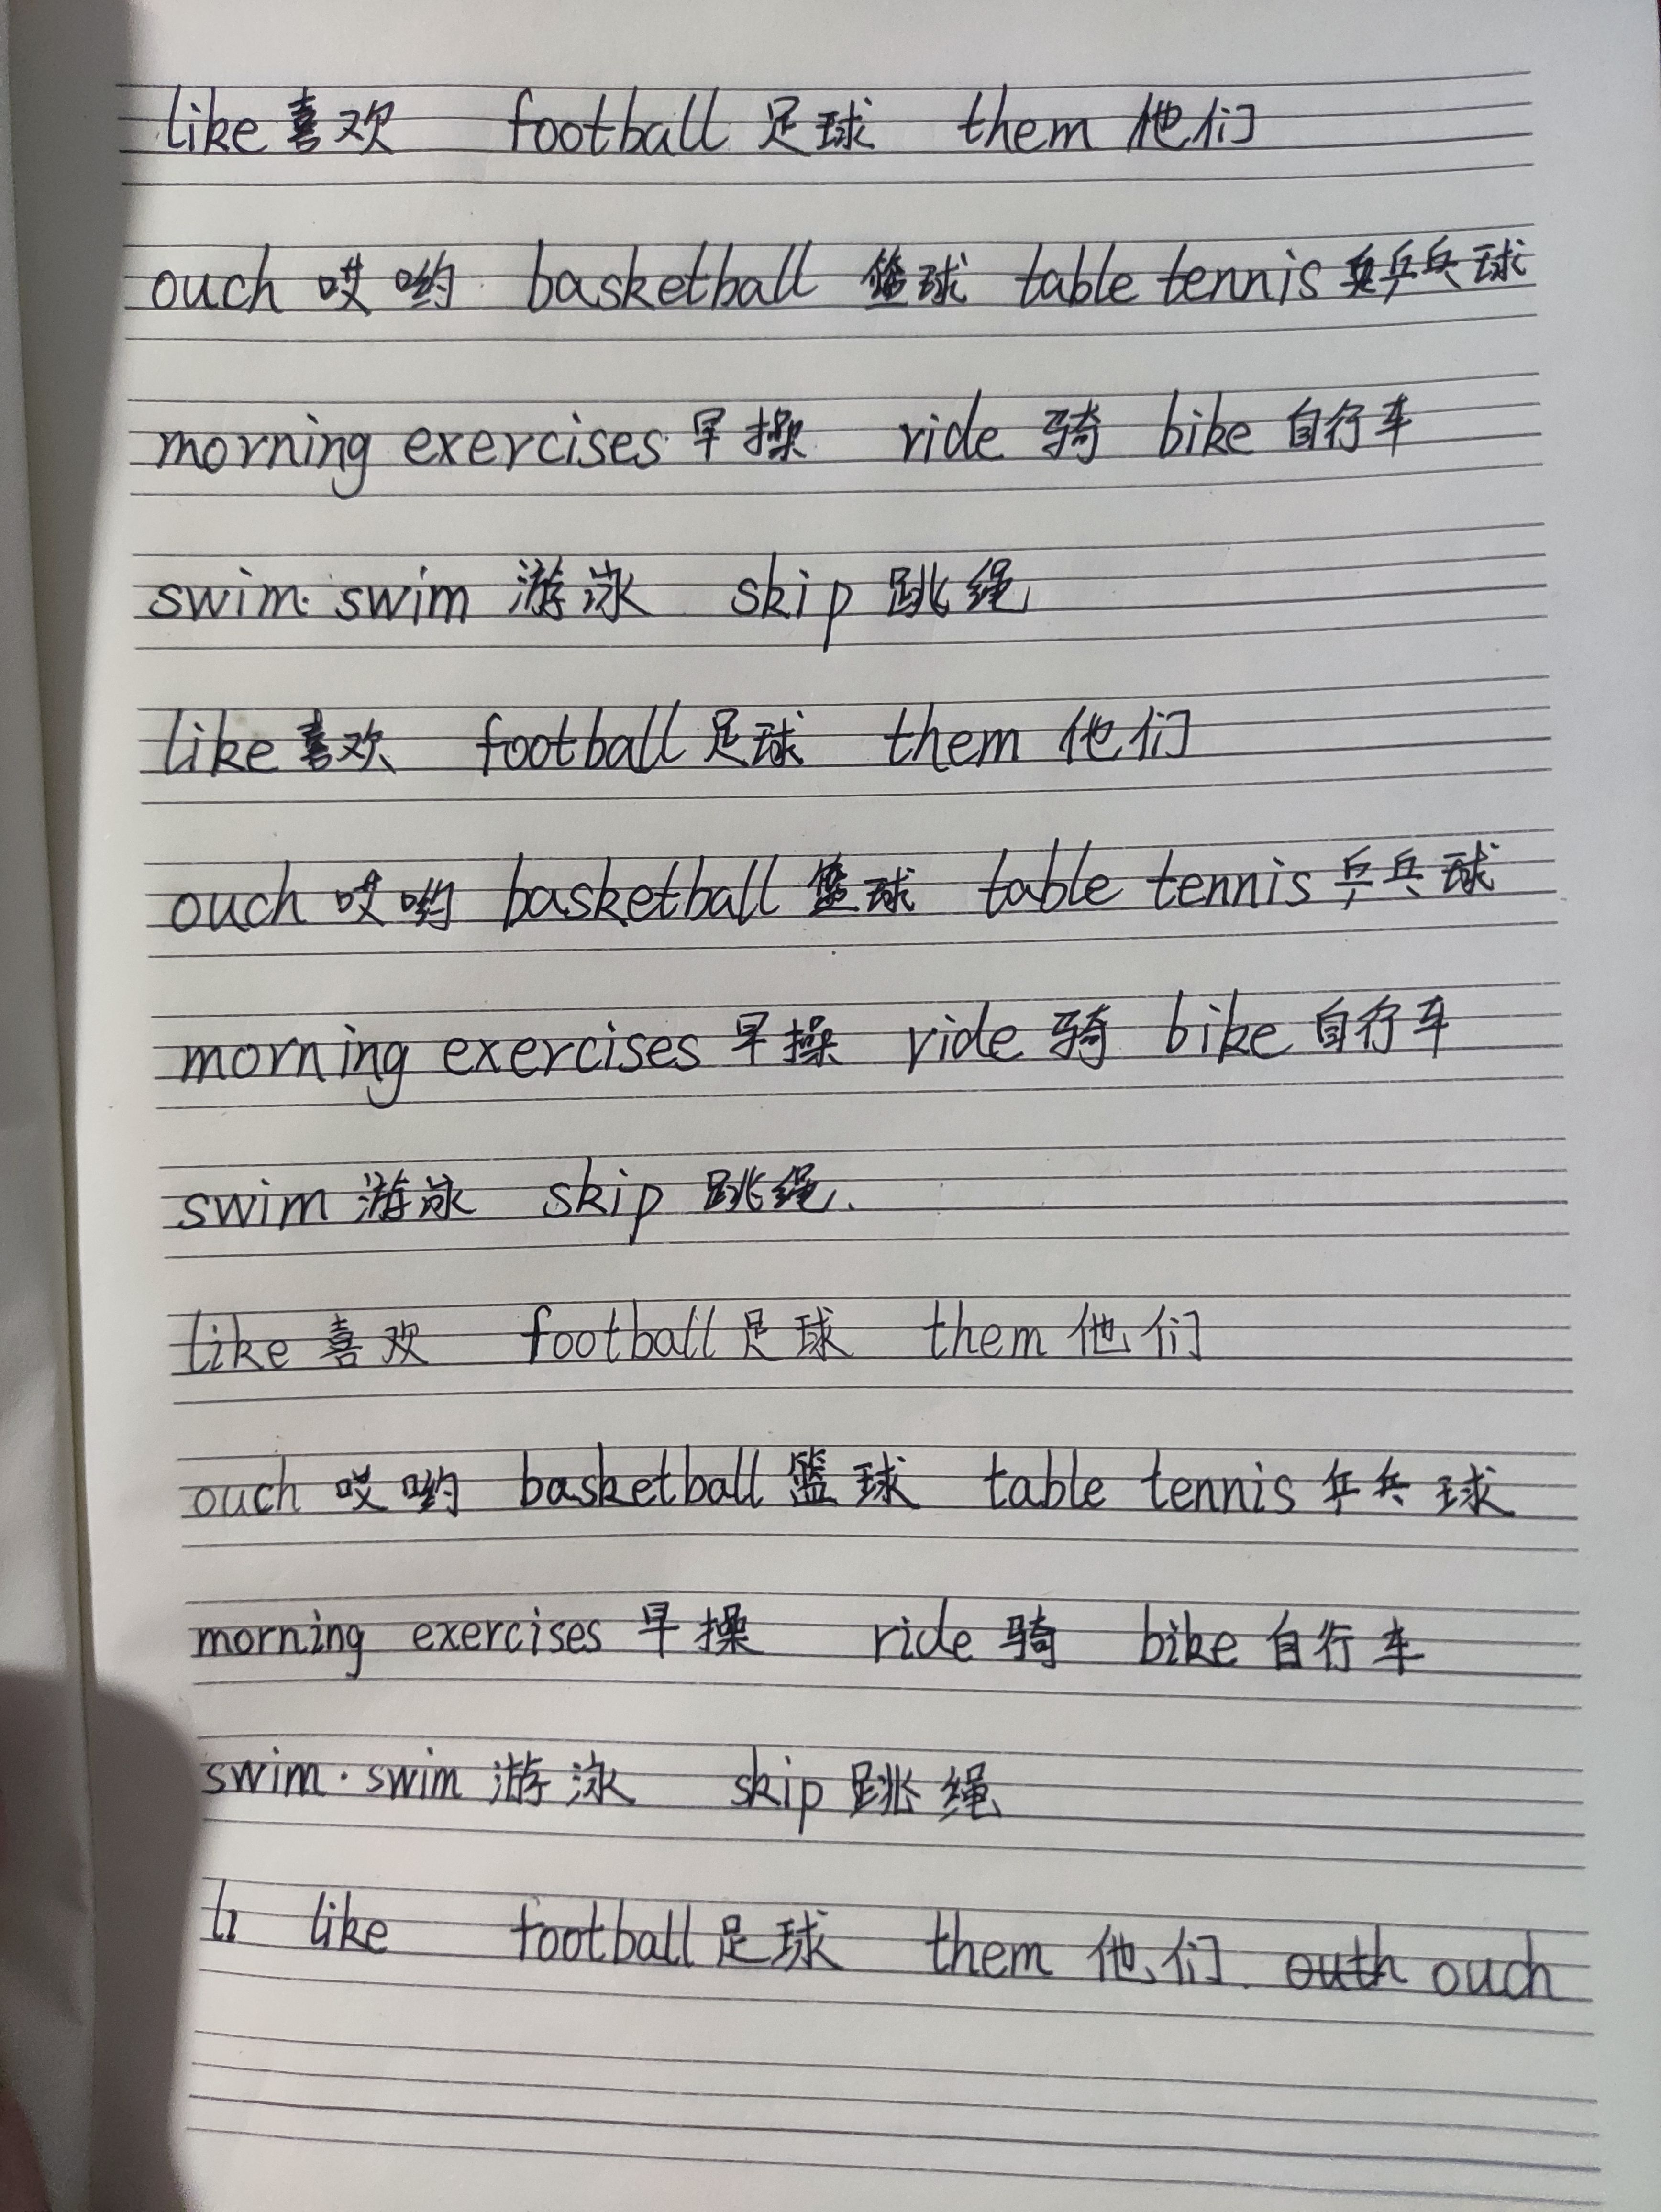 like 喜欢 football 足球 them 他们
ouch 哎哟 basketball 篮球 table tennis 乒乓球
morning exercises 早操 ride 骑 bike 自行车
swim. swim 游泳 skip 跳绳
like 喜欢 football 足球 them 他们
ouch 哎哟 basketball 篮球 table tennis 乒乓球
morning exercises 早操 ride 骑 bike 自行车
swim 游泳 skip 跳绳.
like 喜欢 football 足球 them 他们
ouch 哎哟 basketball 篮球 table tennis 乒乓球
morning exercises 早操 ride 骑 bike 自行车
swim. swim 游泳 skip 跳绳
li like football 足球 them 他们. outh ouch